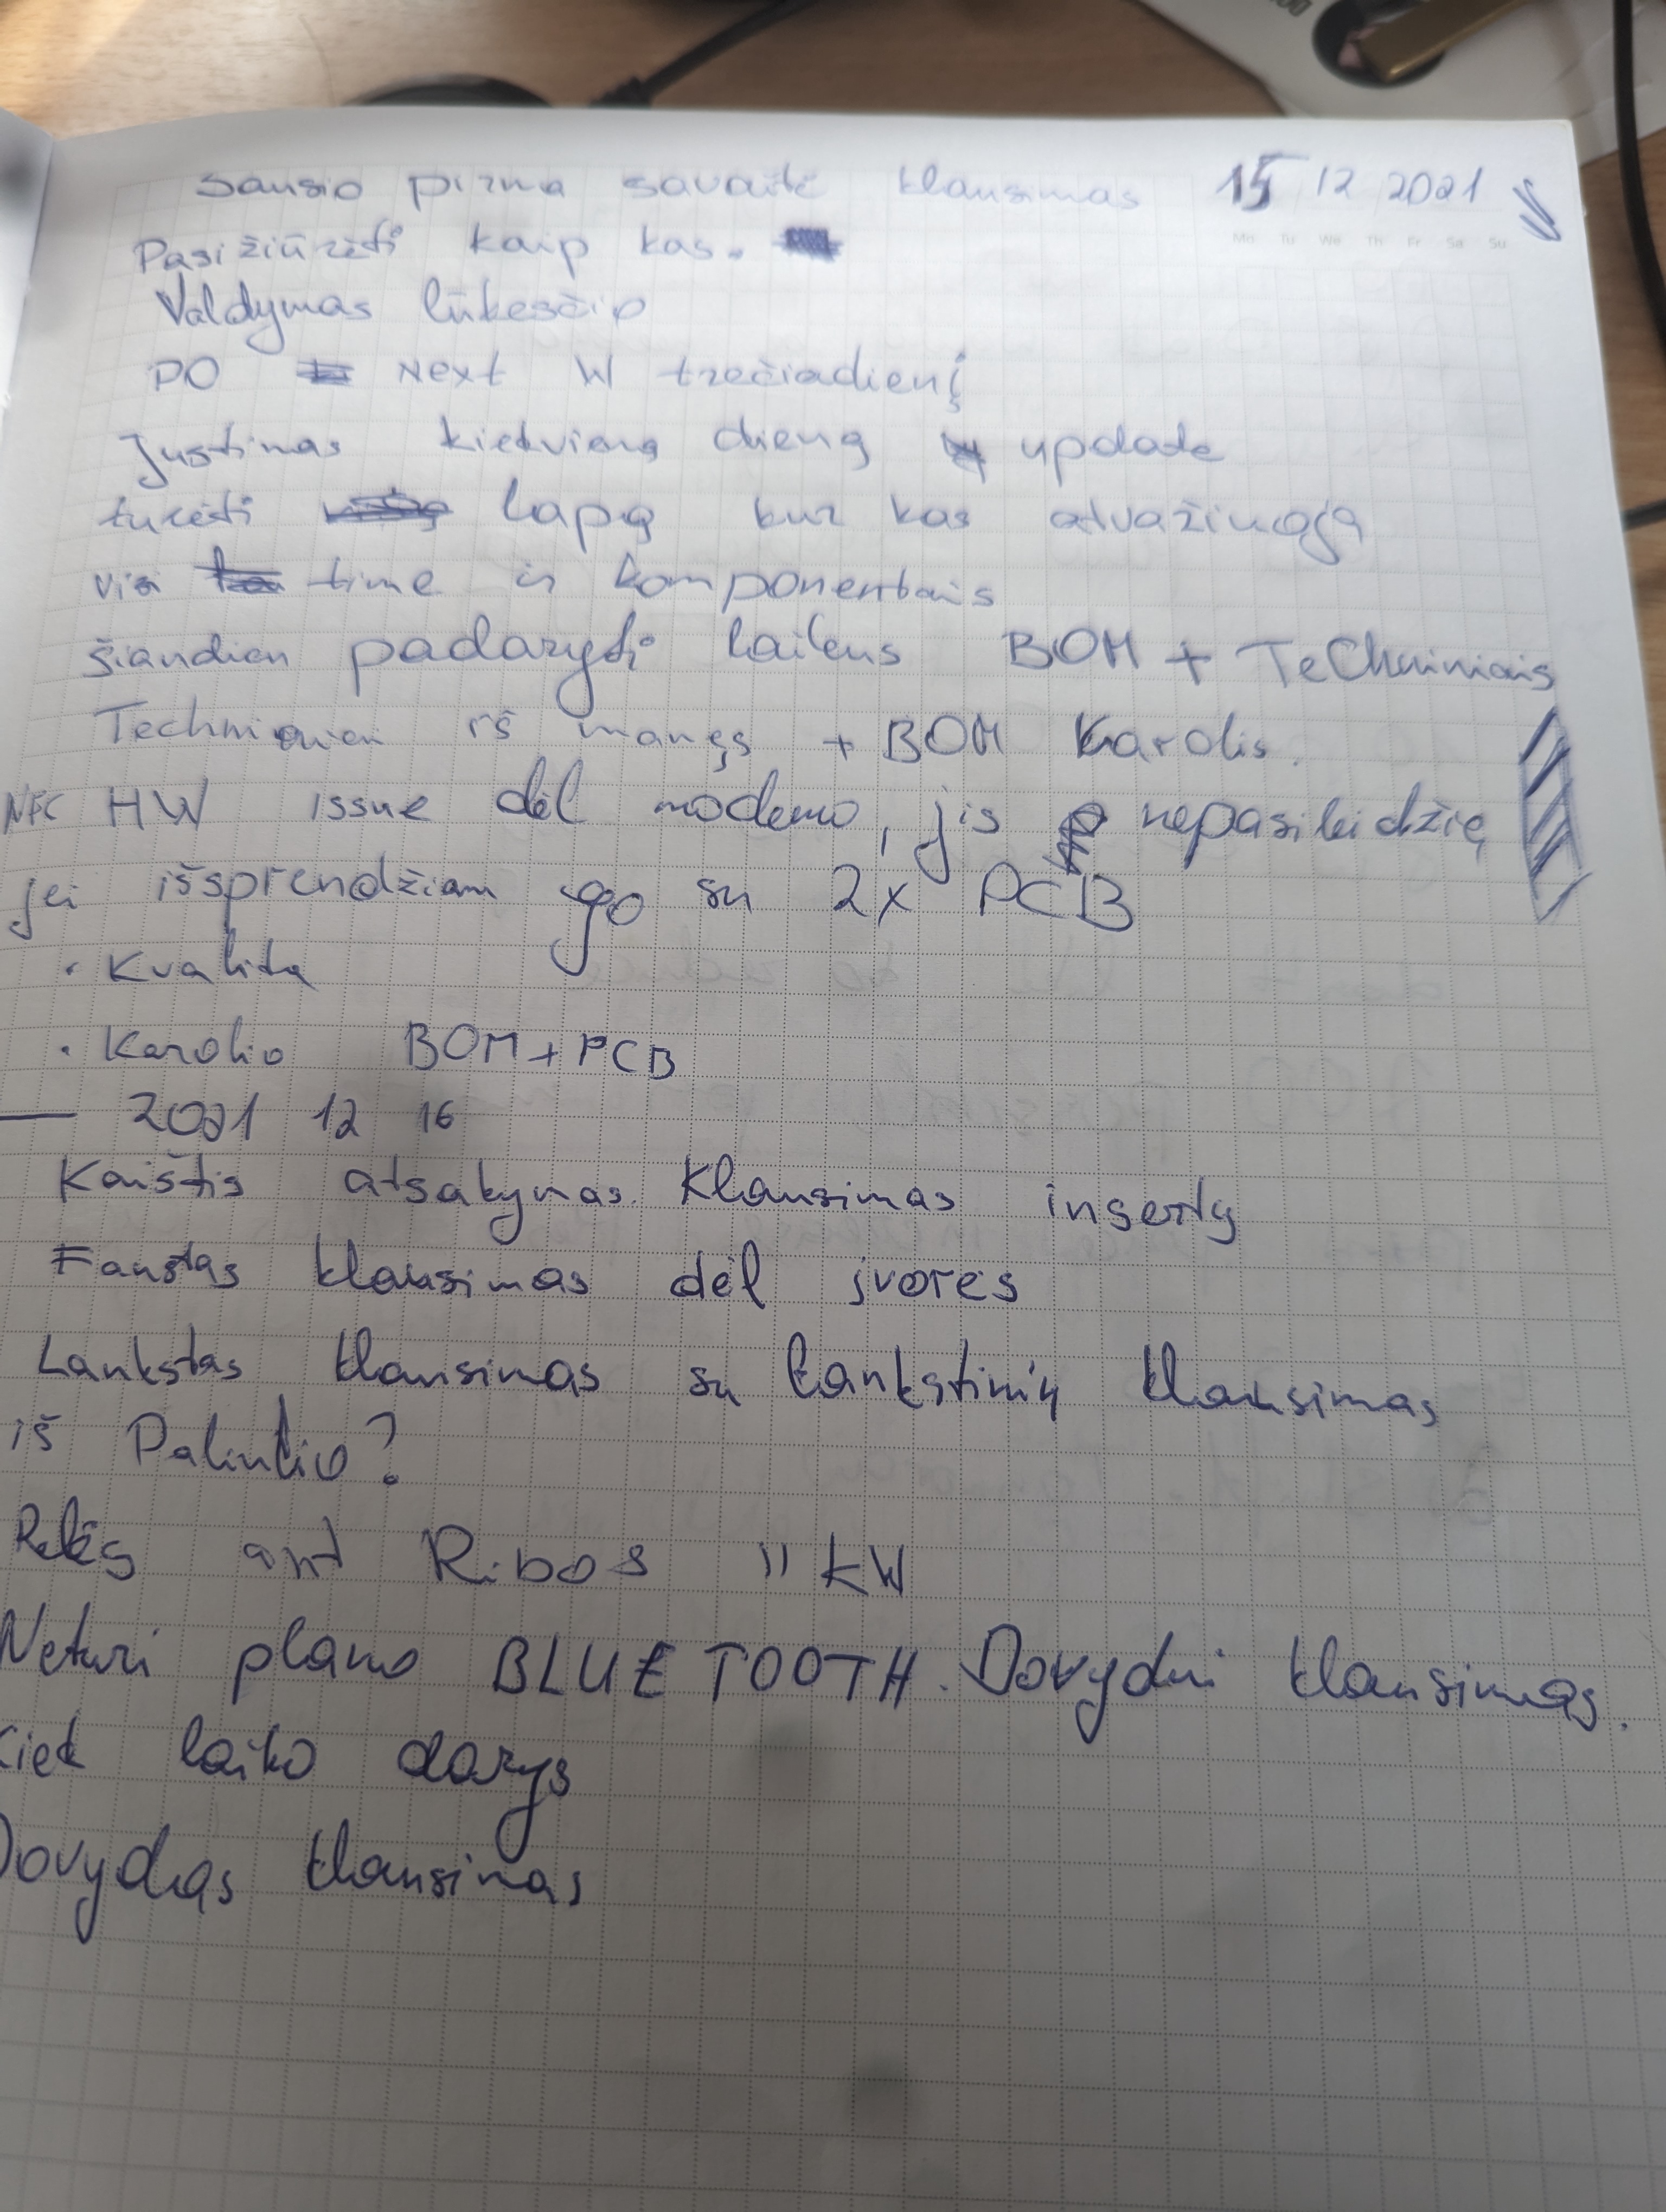 Sausio pirma savaitė klausimas 15 12 2021
Mo Tu We Th Fr Sa Su
Pasižiūrėti kaip kas.
Valdymas lūkesčio
PO Next W trečiadienį
Justinas kiekvieną dieną update
turėti lapą kur kas atvažiuoja
visi time ir komponentais
šiandien padaryti laikus BOM + Techniniais
iš manęs + BOM Karolis.
NFC HW issue dėl modemo, jis nepasileidžia
jei išsprendžiam go su 2x PCB
• Kvalita
• Karolio BOM + PCB
— 2021 12 16
Kaištis atsakymas. Klausimas insertų
Faustas klausimas dėl įvorės
Lankstas klausimas su lankstinių klausimas
iš
Relės ant Ribos 11 kW
Neturi plano BLUETOOTH. Dovydui klausimas.
Kiek laiko darys
Dovydas klausimas